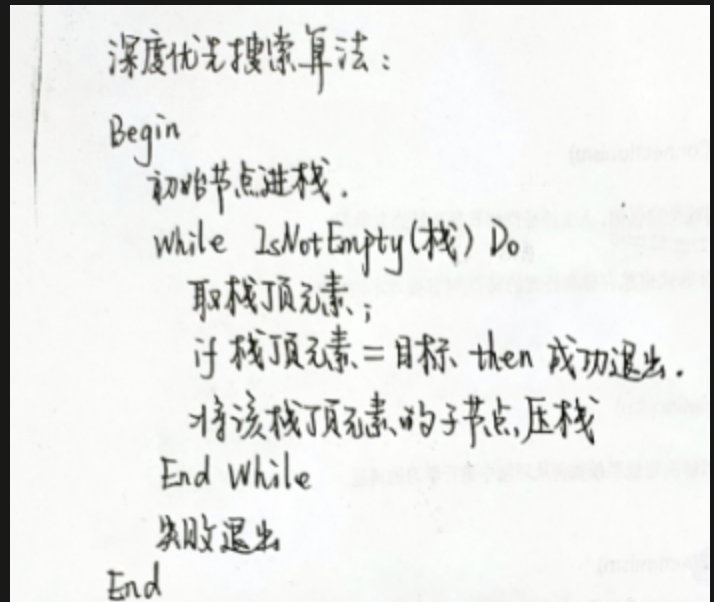 深度优先搜索算法：
Begin
初始节点进栈.
While IsNotEmpty(栈) Do
取栈顶元素;
if 栈顶元素=目标 then 成功退出.
将该栈顶元素的子节点压栈
End While
失败退出
End